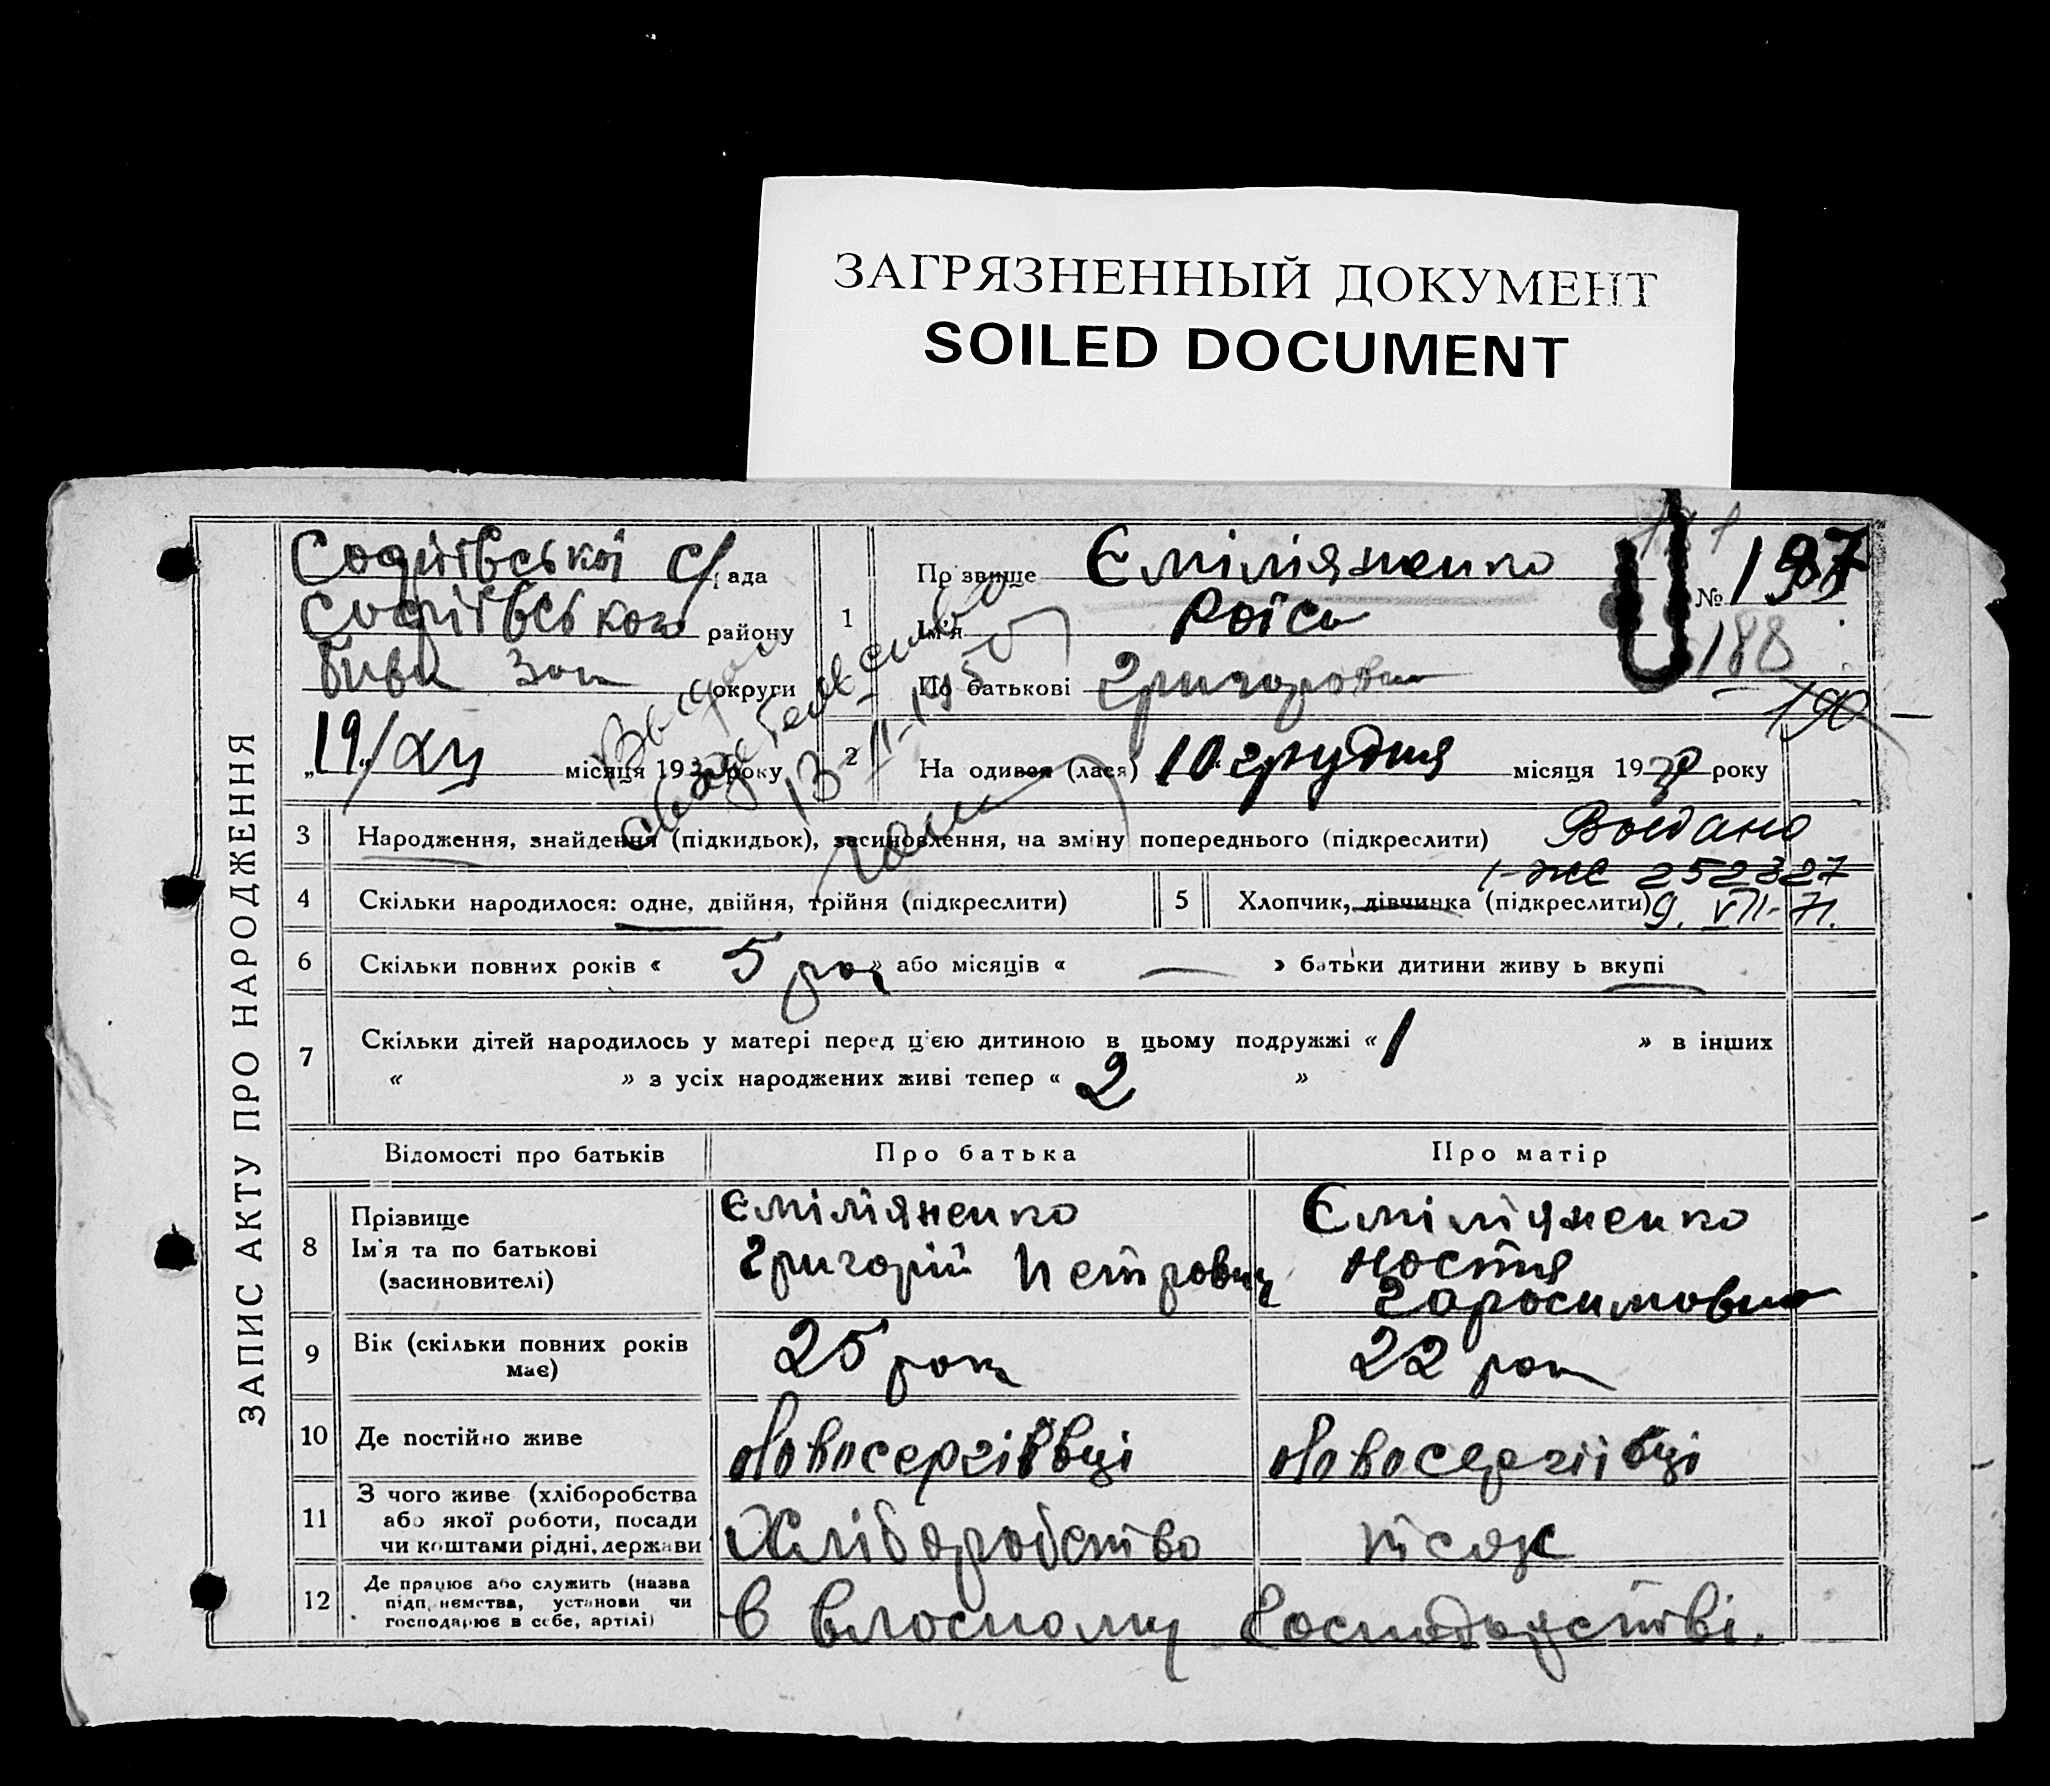 ЗАГРЯЗНЕННЫЙ ДОКУМЕНТ
SOILED DOCUMENT
ЗАПИС АКТУ ПРО НАРОДЖЕННЯ
Софіївської с/рада
Софіївського району
округи
„19„/XII місяця 193 року
1 Прізвище Єміліяненко
Ім'я Роіса
По батькові Григоровна
№ 197
188
190
2 На одився (лася) 10 грудня місяця 1930 року
13-II-195
3 Народження, знайдення (підкидьок), засиновлення, на зміну попереднього (підкреслити)
Выдано
І-ЖС 252327
9. VII-71.
4 Скільки народилося: одне, двійня, трійня (підкреслити)
5 Хлопчик, дівчинка (підкреслити)
6 Скільки повних років « 5 рок » або місяців « — » батьки дитини живу ь вкупі
7 Скільки дітей народилось у матері перед ц'єю дитиною в цьому подружжі « 1 » в інших
« » з усіх народжених живі тепер « 2 »
Відомості про батьків Про батька Про матір
8 Прізвище Єміліяненко Єміліяненко
Ім'я та по батькові Григорій Петрович Настя
(засиновителі) Гаросимовна
9 Вік (скільки повних років має) 25 рок 22 рок
10 Де постійно живе Новосергіївці Новосергіївці
11 З чого живе (хліборобства
або якої роботи, посади
чи коштами рідні, держави Хліборобство
12 Де працює або служить (назва
підп, немства, установи чи
господарює в себе, артілі) в влосному Господарстві.